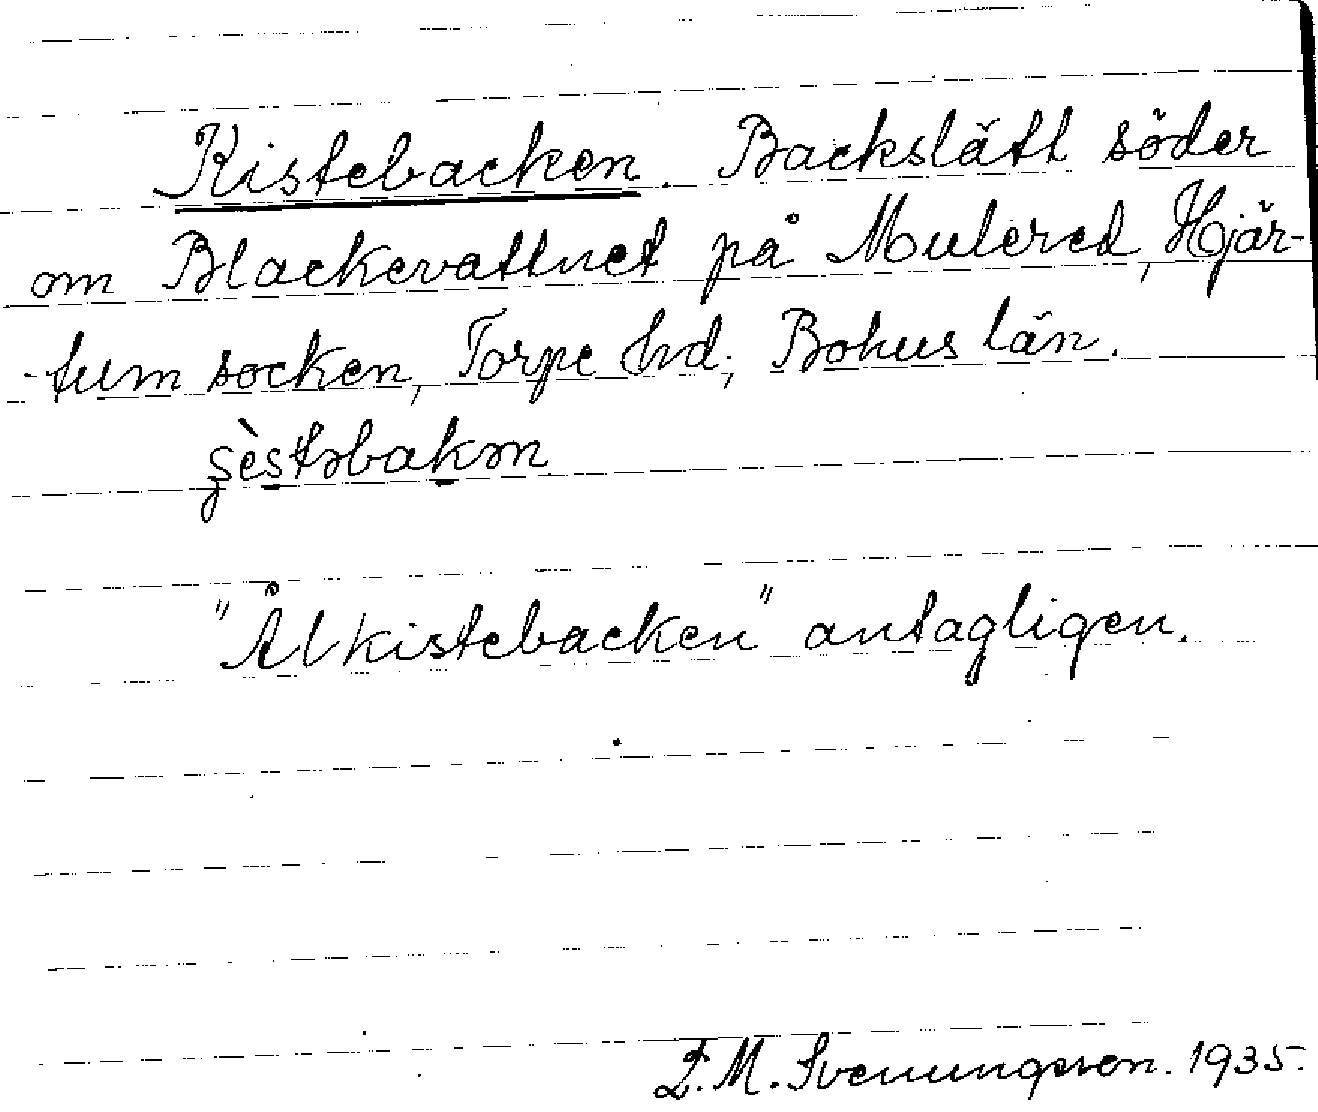 Kistebacken. Backslätt söder
om Blackevattnet på Mulered, Hjär-
-tum socken, Torpe hd, Bohus län.
"Ålkistebacken" antagligen.
L. M. Svenungsson. 1935.